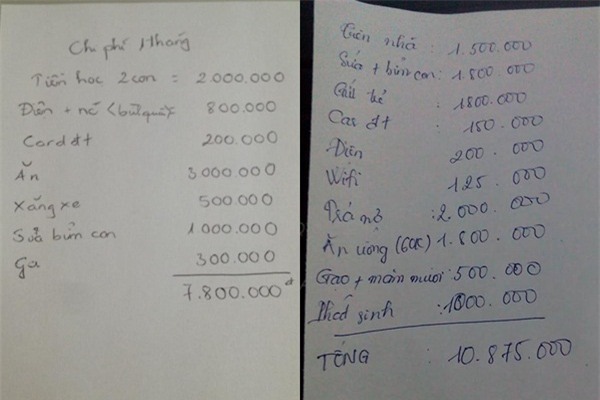 Chi phí 1 tháng
Tiền học 2 con = 2.000.000
Điện + nc (bình quân) 800.000
Card đt 200.000
Ăn 3000.000
Xăng xe 500.000
Sữa bỉm con 1000.000
Ga 300.000
7.800.000đ
Tiền nhà : 1.500.000
Sữa + bỉm con: 1.800.000
Gửi trẻ : 1800.000
Car đt : 150.000
Điện 200.000
Wifi 125.000
Trả nợ : 2.000.000
Ăn uống (60k) 1.800.000
Gạo + mắm muối : 500.000
Phát sinh : 1000.000
TỔNG : 10.875.000